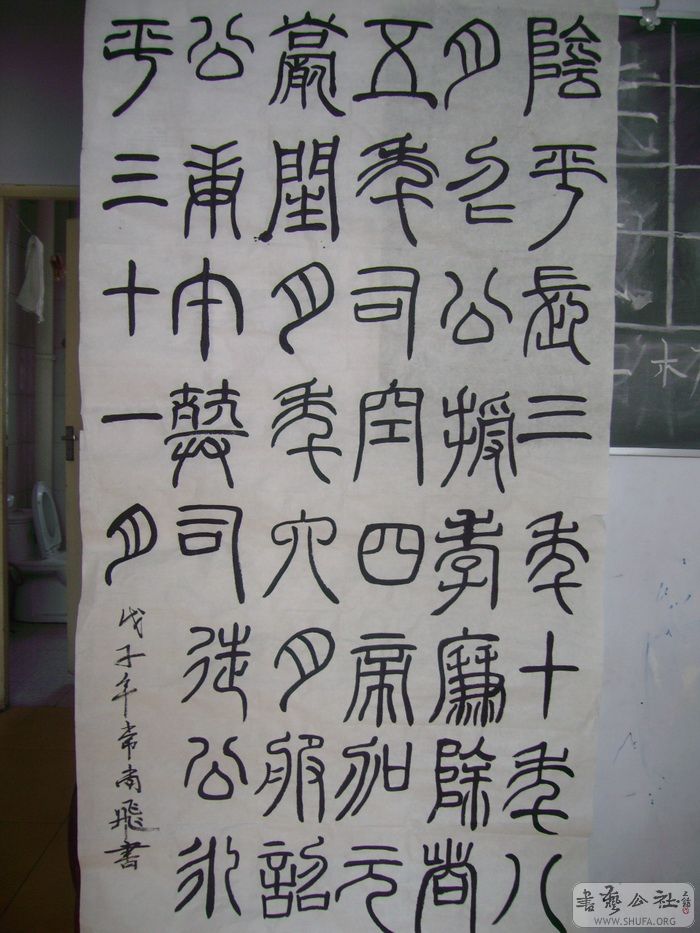 陰平長三年十年八
月公授孝廉除
五年司空四帝加元
薨閏月年六月服詔
公庚午葬司徒公永
平三十一月
戊子年常尚飛書
書藝公社
WWW.SHUFA.ORG